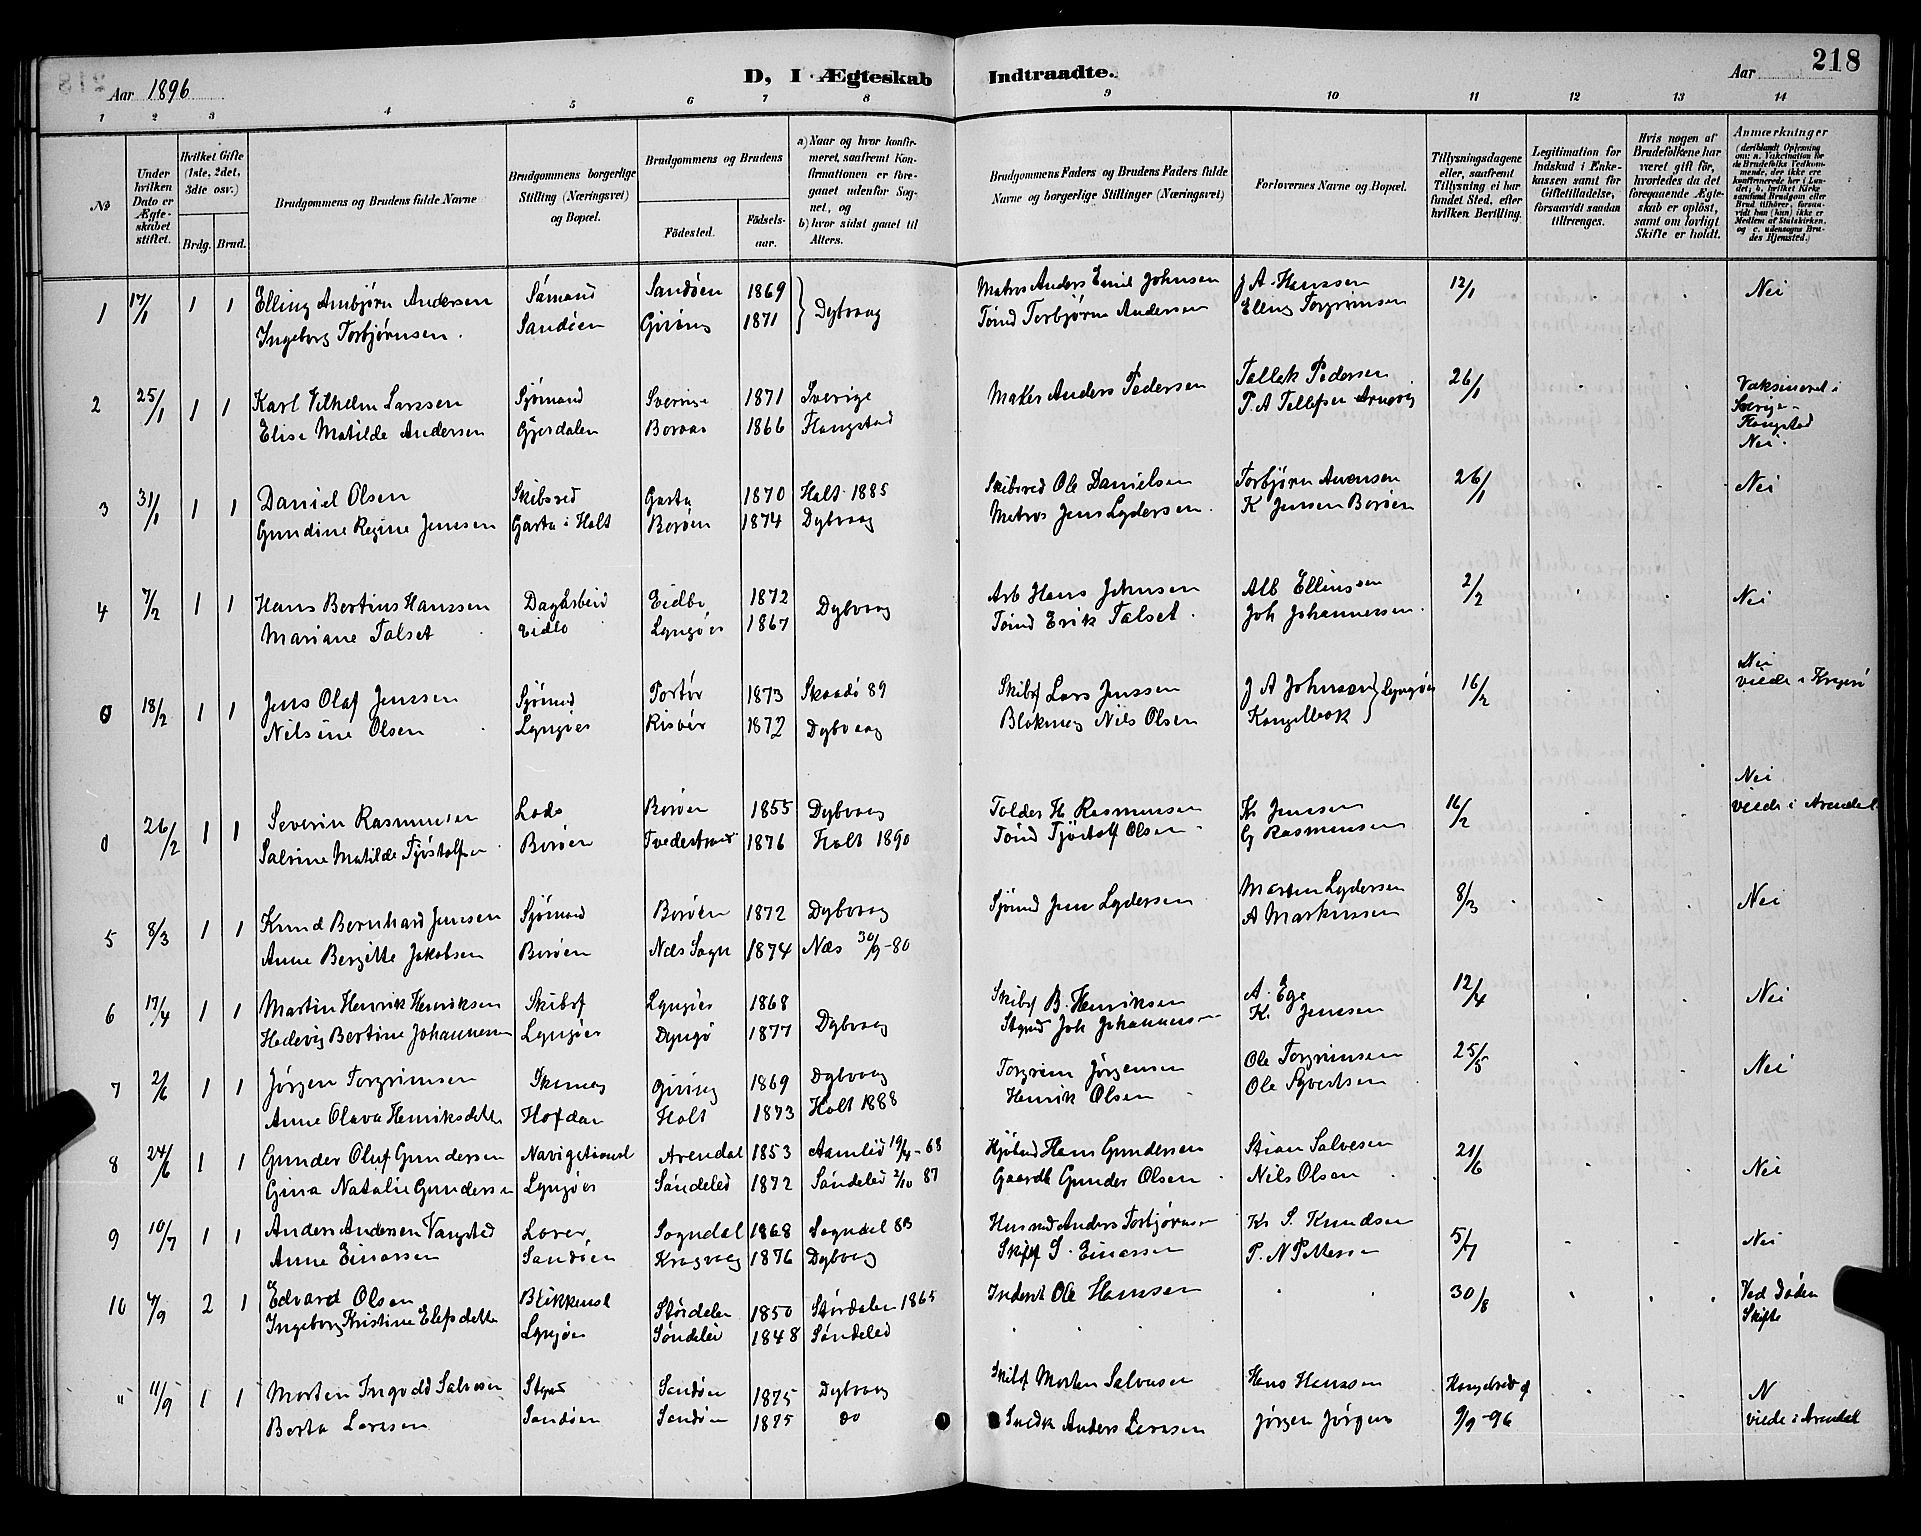 218
D, I Ægteskab Indtraadte.
Aar 1896
Aar
1 2 3 4 5 6 7 8 9 10 11 12 13 14
No
Under hvilken Dato er Ægteskabet stiftet.
Hvilket Gifte (1ste, 2det, 3die osv.)
Brdg. Brud.
Brudgommens og Brudens fulde Navne
Brudgommens borgerlige Stilling (Næringsvei) og Bopæl.
Brudgommens og Brudens
Fødested.
Fødselsaar.
a) Naar og hvor konfirmeret, saafremt Konfirmationen er foregaaet udenfor Sognet, og
b) hvor sidst gaaet til Alters.
Brudgommens Faders og Brudens Faders fulde Navne og borgerlige Stillinger (Næringsvei)
Forlovernes Navne og Bopæl.
Tillysningsdagene eller, saafremt Tillysning ei har fundet Sted, efter hvilken Bevilling.
Legitimation for Indskud i Enkekassen samt for Giftetilladelse, forsaavidt saadan tiltrænges.
Hvis nogen af Brudefolkene har været gift før, hvorledes da det foregaaende Ægteskab er opløst, samt om lovligt Skifte er holdt.
Anmærkninger (deriblandt Oplysning om: a. Vakcination for de Brudefolks Vedkommende, der ikke ere konfirmerede her i Landet; b. hvilket Kirkesamfund Brudgom eller Brud tilhører, forsaavidt han (hun) ikke er Medlem af Statskirken, og c. udensogns Brudes Hjemsted.)
1 17/1 1 1 Elling Ambjørn Andersen Sømand Sandøen 1869 } Dybvaag Matros Anders Emil Johnsen J A Hanssen 12/1 Nei
Ingeborg Torbjørnsen. Sandøen Giving 1871 Tømd Torbjørn Andersen Elling Torgrimsen
2 25/1 1 1 Karl Vilhelm Larssen Sjømand Sverige 1871 Sverige Tellek Pedersen 26/1 Vaksineret i Sverige
Elise Matilde Andersen Gjerdalen Boraas 1866 Flangstad Anders Pedersen P. A Tellefsen Arnevig Nei.
3 31/1 1 1 Daniel Olsen Skibsred Garta 1870 Holt 1885 Skibsred Ole Danielsen Torbjørn 26/1 Nei
Gundine Regine Jenssen Garta i Holt Borøen 1874 Dybvaag Matros Jens Lydersen. K Jensen Borøen
4 7/2 1 1 Hans Bertius Hanssen Dagarbeid Eidbo 1872 Dybvaag Arb Hans Johnsen Alb Ellingsen 2/2 Nei
Mariane Talset Eidbo Lyngør 1867 Tømd Erik Talset. Joh Johannessen.
0 18/2 1 1 Jens Olaf Jenssen Sjømd Portør 1873 Skaadø 89 Skibsf Lars Jenssen J A Johnsen } Lyngør 16/2 Nei viede i Kragerø
Nilsine Olsen Lyngør Risør 1872 Dybvaag Blokmag Nils Olsen
0 26/2 1 1 Severin Rasmussen Lods Borøen 1855 Dybvaag Tolder H Rasmussen K Jenssen 16/2 Nei viede i Arendal
Salvine Matilde Borøen Tvedestrand 1876 Holt 1890 Tømd Tjøstolf Olsen G Rasmussen
5 8/3 1 1 Knud Bernhard Jenssen Sjømand Borøen 1872 Dybvaag Sjømd Jens Lydersen Morten Lydersen 8/3 Nei
Anne Bergitte Jakobsen Borøen Næs Sogn 1874 Næs 30/9-80 A Markussen
6 17/4 1 1 Martin Henrik Henriksen Skibsf Lyngør 1868 Dybvaag Skibsf B. Henriksen A. Ege 12/4 Nei
Hedevig Bertine Johannessen Lyngør Dyngø 1877 Joh Johannessen K. Jenssen
7 2/6 1 1 Jørgen Torgrimsen Skomag Giving 1869 Dybvaag Torgrim Jørgensen Ole Torgrimsen 25/5 Nei
Anne Olava Henriksdatter Hofdan Holt 1873 Holt 1888 Henrik Olsen Ole Syvertsen
8 24/6 1 1 Gunder Oluf Gundersen Navigationsl Arendal 1853 Aamlid 19/4-68 Kjøbmd Hans Gundersen Stian Salvesen 21/6 Nei
Gina Natalie Gundersen Lyngør Søndeled 1872 Søndeled 2/10 87 Gaardb Gunder Olsen Nils Olsen
9 10/7 1 1 Anders Andersen Vangsted Lærer Sogndal 1868 Sogndal 83 Husmd Anders Torbjørnsen Kr S. Knudsen 5/7 Nei
Anne Einarsen Sandøen Kragvaag 1876 Dybvaag Skipsf S. Einarsen P. N Pettersen
10 4/9 2 1 Edvard Olsen Blikkensl Størdalen 1850 Størdalen 1865 Inderst Ole Hanssen 30/8 Ved Døden
Ingeborg Kristine Elefsdatter Lyngør Søndeled 1848 Søndeled Skifte
" 11/9 1 1 Morten Ingvald Salvesen Sandøen 1875 Dybvaag Skibsf Morten Salvesen Hans Hanssen N
Berta Larssen Sandøen Sandøen 1875 do Snedk Anders Larssen Jørgen Jørgens 9/9-96 viede i Arendal